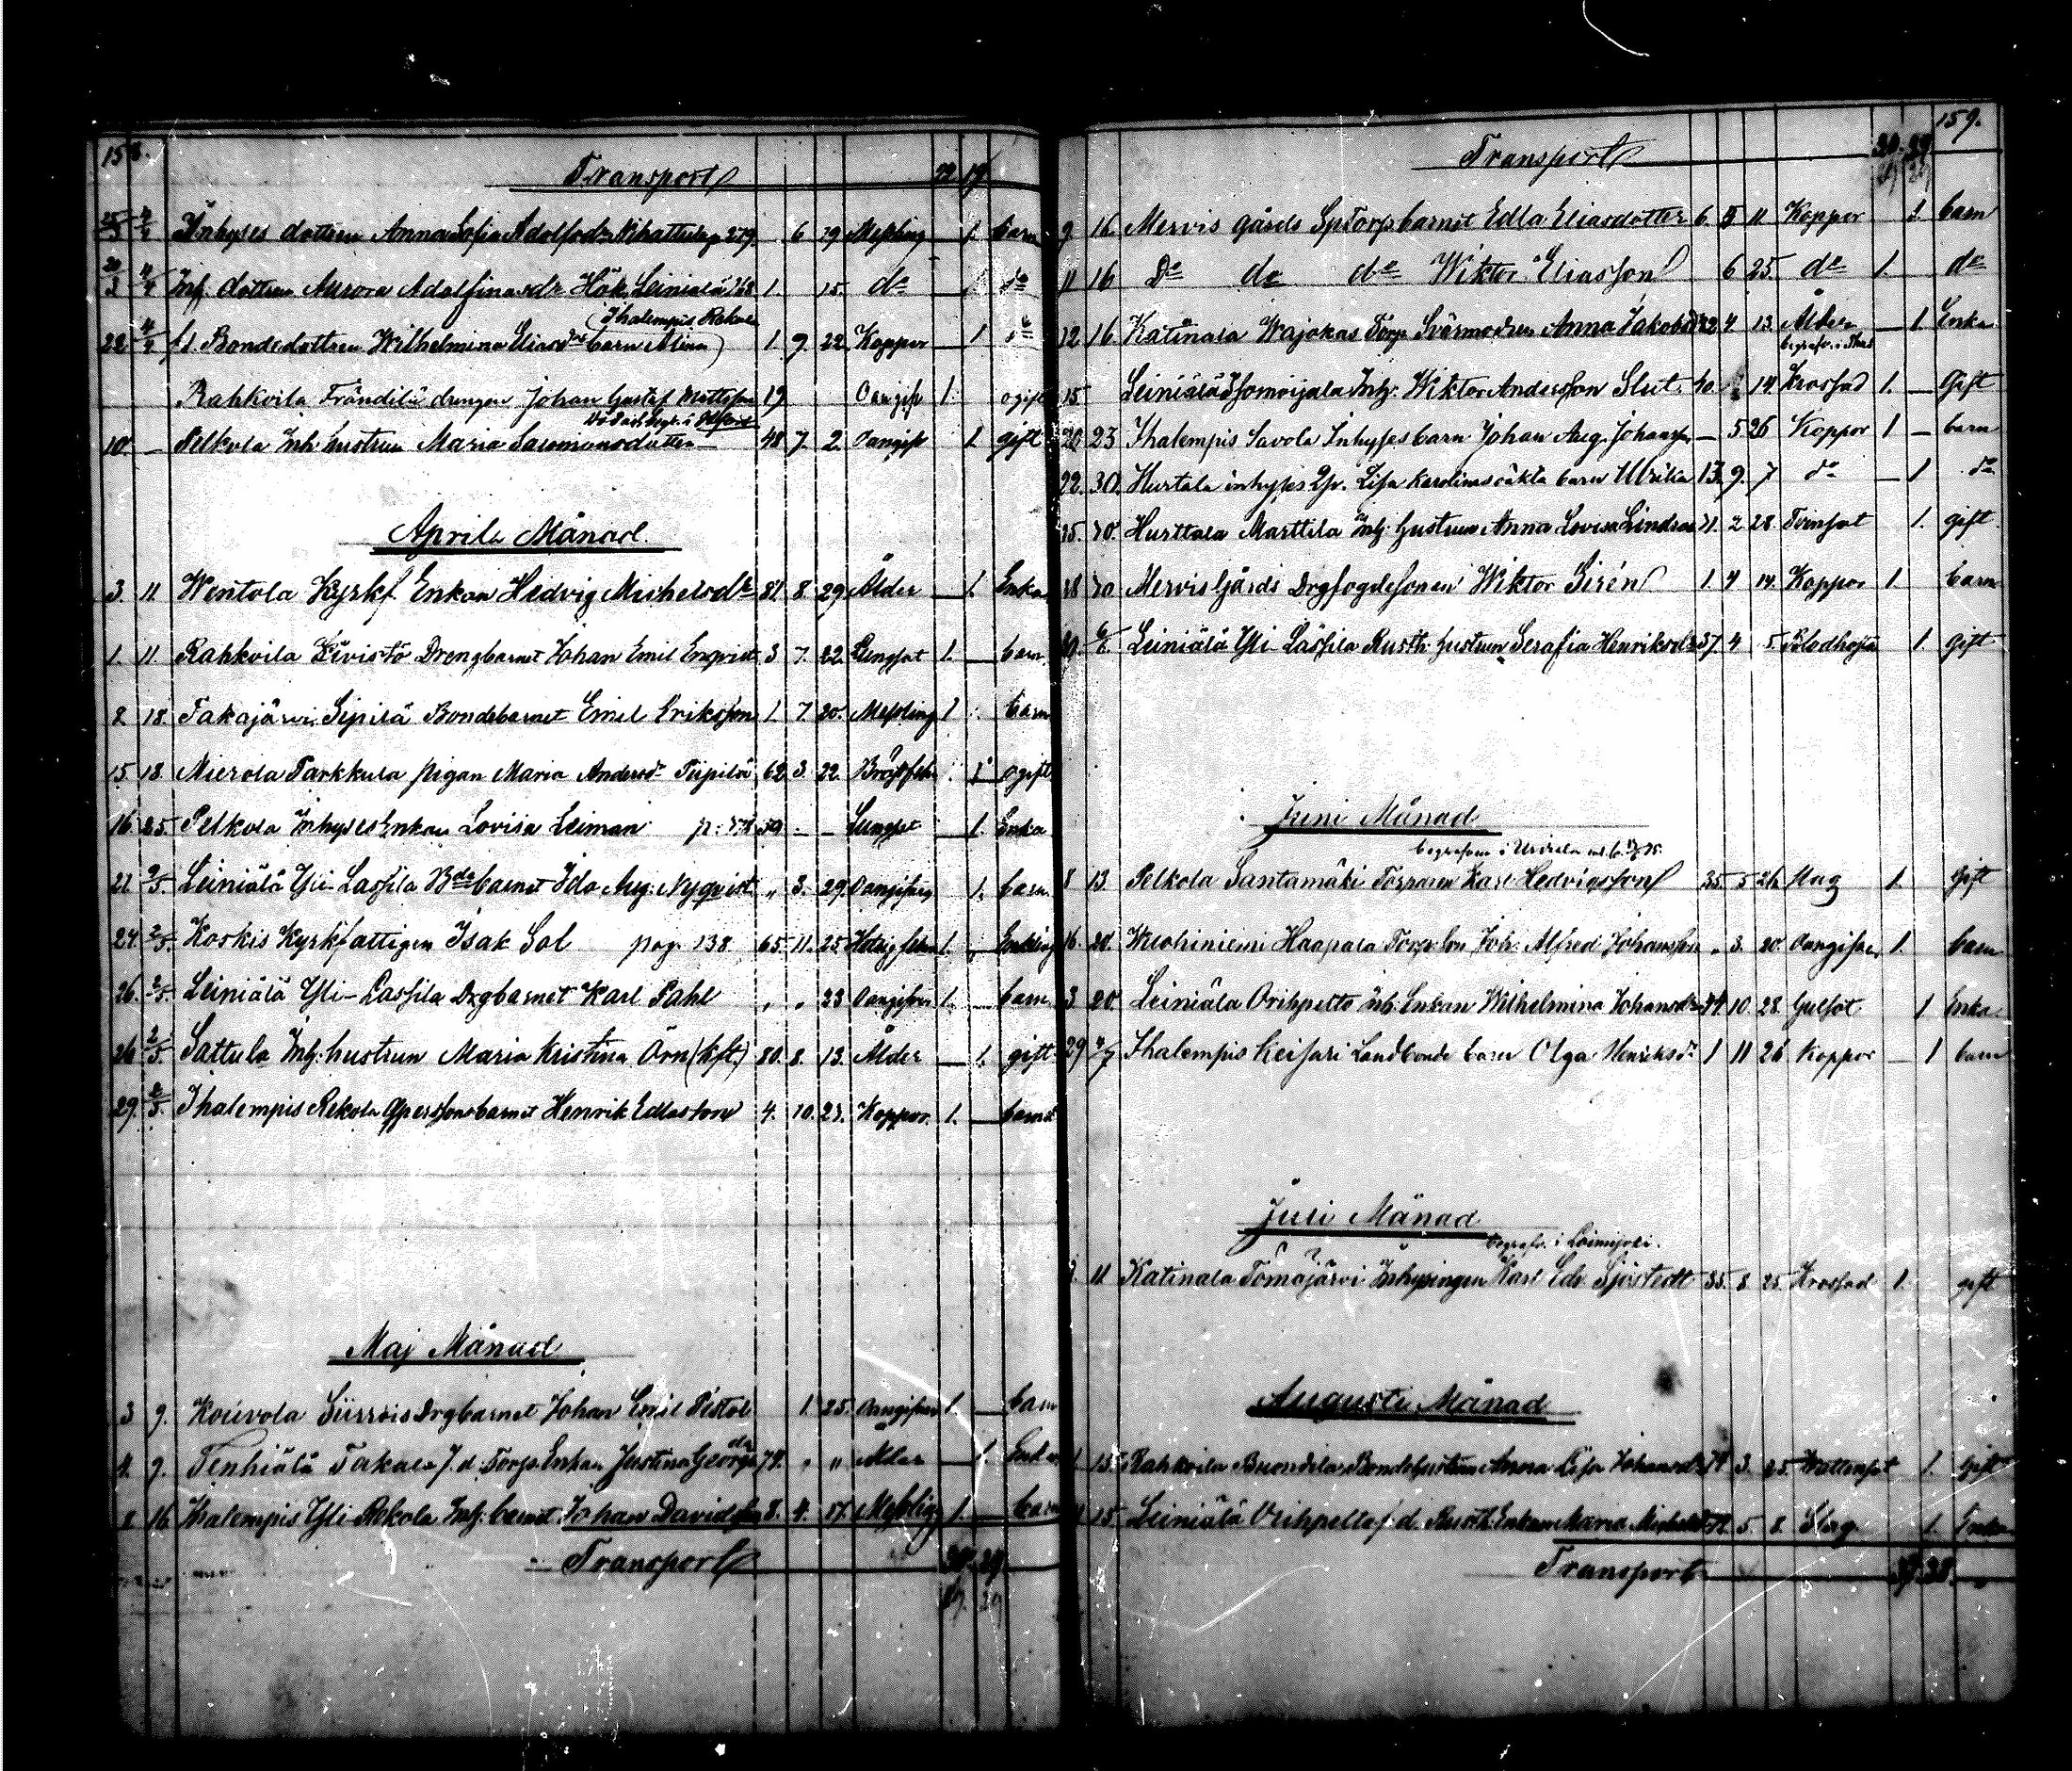 158.
Transport
Inhyses dottern Anna Sofia Adolfsdr N. hattula p 279 6 19 Messling 1. barn
20/3 4/4 Inh. dottern Aurora Adolfina Höök Leiniälä 268 1. 15. do do
(Ihalempis Rekola
22 4/4 f.d. Bondedottren Wilhelmina Eliasdrs barn Alma) 1. 9. 22. Koppor 1 do
Rahkoila Frändilä drengen Johan Gustaf Mattsson 19 Oangif. 1. ogift
10. — Pelkola Inh. hustrun Maria Salomonsdotter 48 7. 2. Oangif 1 gift
Aprill Månad.
3. 11 Wentola Kyrkf. Enkan Hedvig Michelsdr 81. 8. 29 Ålder — 1. Enka
1. 11. Rahkoila Levistö Drengbarnet Johan Emil Enqvist 3 7. 22. Lungsot 1. — barn
8. 18. Takajärvi Sipilä Bondebarnet Emil Eriksson 1. 7. 20. Messling 1 barn
15. 18. Mierola Parkkula pigan Maria Andersdr Piipilä 62. 3. 22. Bröstfeber 1 ogift
16. 25. Pelkola Inhyses Enkan Lovisa Leiman 59 — — Lungsot — 1. Enka
21 2/5. Leiniälä Yli-Lassila Bdebarnet Ida Aug. Nyqvist " 3. 29. Oangifven 1. barn
24. 2/5. Koskis Kyrkfattigen Isak Sal pag. 138. 65. 11. 25. 1. Enkling
26. 2/5. Leiniälä Yli-Lassila Drgbarnet Karl Dahl " " 23 Oangifven 1. — barn
26 2/5. Sattula Inh. hustrun Maria Kristina Örn (kft.) 80. 8. 13. Ålder — 1. gift
29. 2/5. Ihalempis Rekola barnet Henrik Edlasson 4. 10. 23. Koppor. 1. — barnet
Maj Månad
3 9. Koivola Siirrois Drgbarnet Johan Emil Pistol 1. 25. Oangifven 1. — barn
4. 9. Tenhiälä Takala f.d. Torp. Enkan Justina Georgsdr 74. " " Ålder — 1. Enka
8 16 Ihalempis Yli Rekola Inh. barnet Johan Davidsson 8. 4. 17. Messling 1. — barn
Transport 30. 29.
159.
Transport 30. 29
9 16. Mervis gårds SpTorpbarnet Edla Eliasdotter 6. 5 11 Koppor 1. barn
11 16 Do do do Wiktor Eliasson 6 25. do 1. do
12 16. Katinala Wajokas Torp Svärmodren Anna Jakobsdr 4 13. Ålder — 1 Enka
15 Leiniälä Isomöijala Inh. Wiktor Andersson Slut. 40. 14. Krossad 1. — Gift
20 23 Ihalempis Savola Inhysesbarn Johan Aug. Johansson — 5 26 Koppor 1 — barn
22. 30. Hurtala inhyses Qv. Lisa Karolinas oäkta barn Ulrika 13. 9. 7 do — 1 do
15. 30. Hurttala Marttila Inh. hustrun Anna Lovisa Lindroos 71. 2 28. Tvinsot 1. gift
18 30 Mervis Gårds Drgfogdesonen Wiktor Sirén 1. 4 14. Koppor 1. barn
30. Leiniälä Yli-Lassila Rusth. hustrun Serafia Henriksdr 37. 4 5. Blodhosta 1. gift
Juni Månad
begrafven i Urdiala
8 13. Pelkola Santamäki Torparen Karl Hedvigsson 35. 5 26 Slag 1. gift
16. 20. Wuohiniemi Haapala Torpson Joh. Alfred Johansson " 3. 20. Oangifven 1. barn
3 20. Leiniälä Orihpelto Inh. Enkan Wilhelmina Johansdr 44. 10. 28. Gulsot 1 Enka
29 4/7 Ihalempis Keisari Landbonde barn Olga Henriksdr 1 11 26 Koppor — 1 barn
Juli Månad
begrafv. i Loimijoki.
11 Katinala Tömäjärvi Inhysingen Karl Edv. Sjöstedt 35. 8. 25. Krossad 1. gift
Augusti Månad
15. Rahkoila Buondila Bondehustrun Anna Lisa Johansdr 3. 25. Wattensot 1. Gift
15. Leiniälä Orihpelto f.d. Rusth. Enkan Maria Michelsdr 5. 8. Slag 1. Enka
Transport